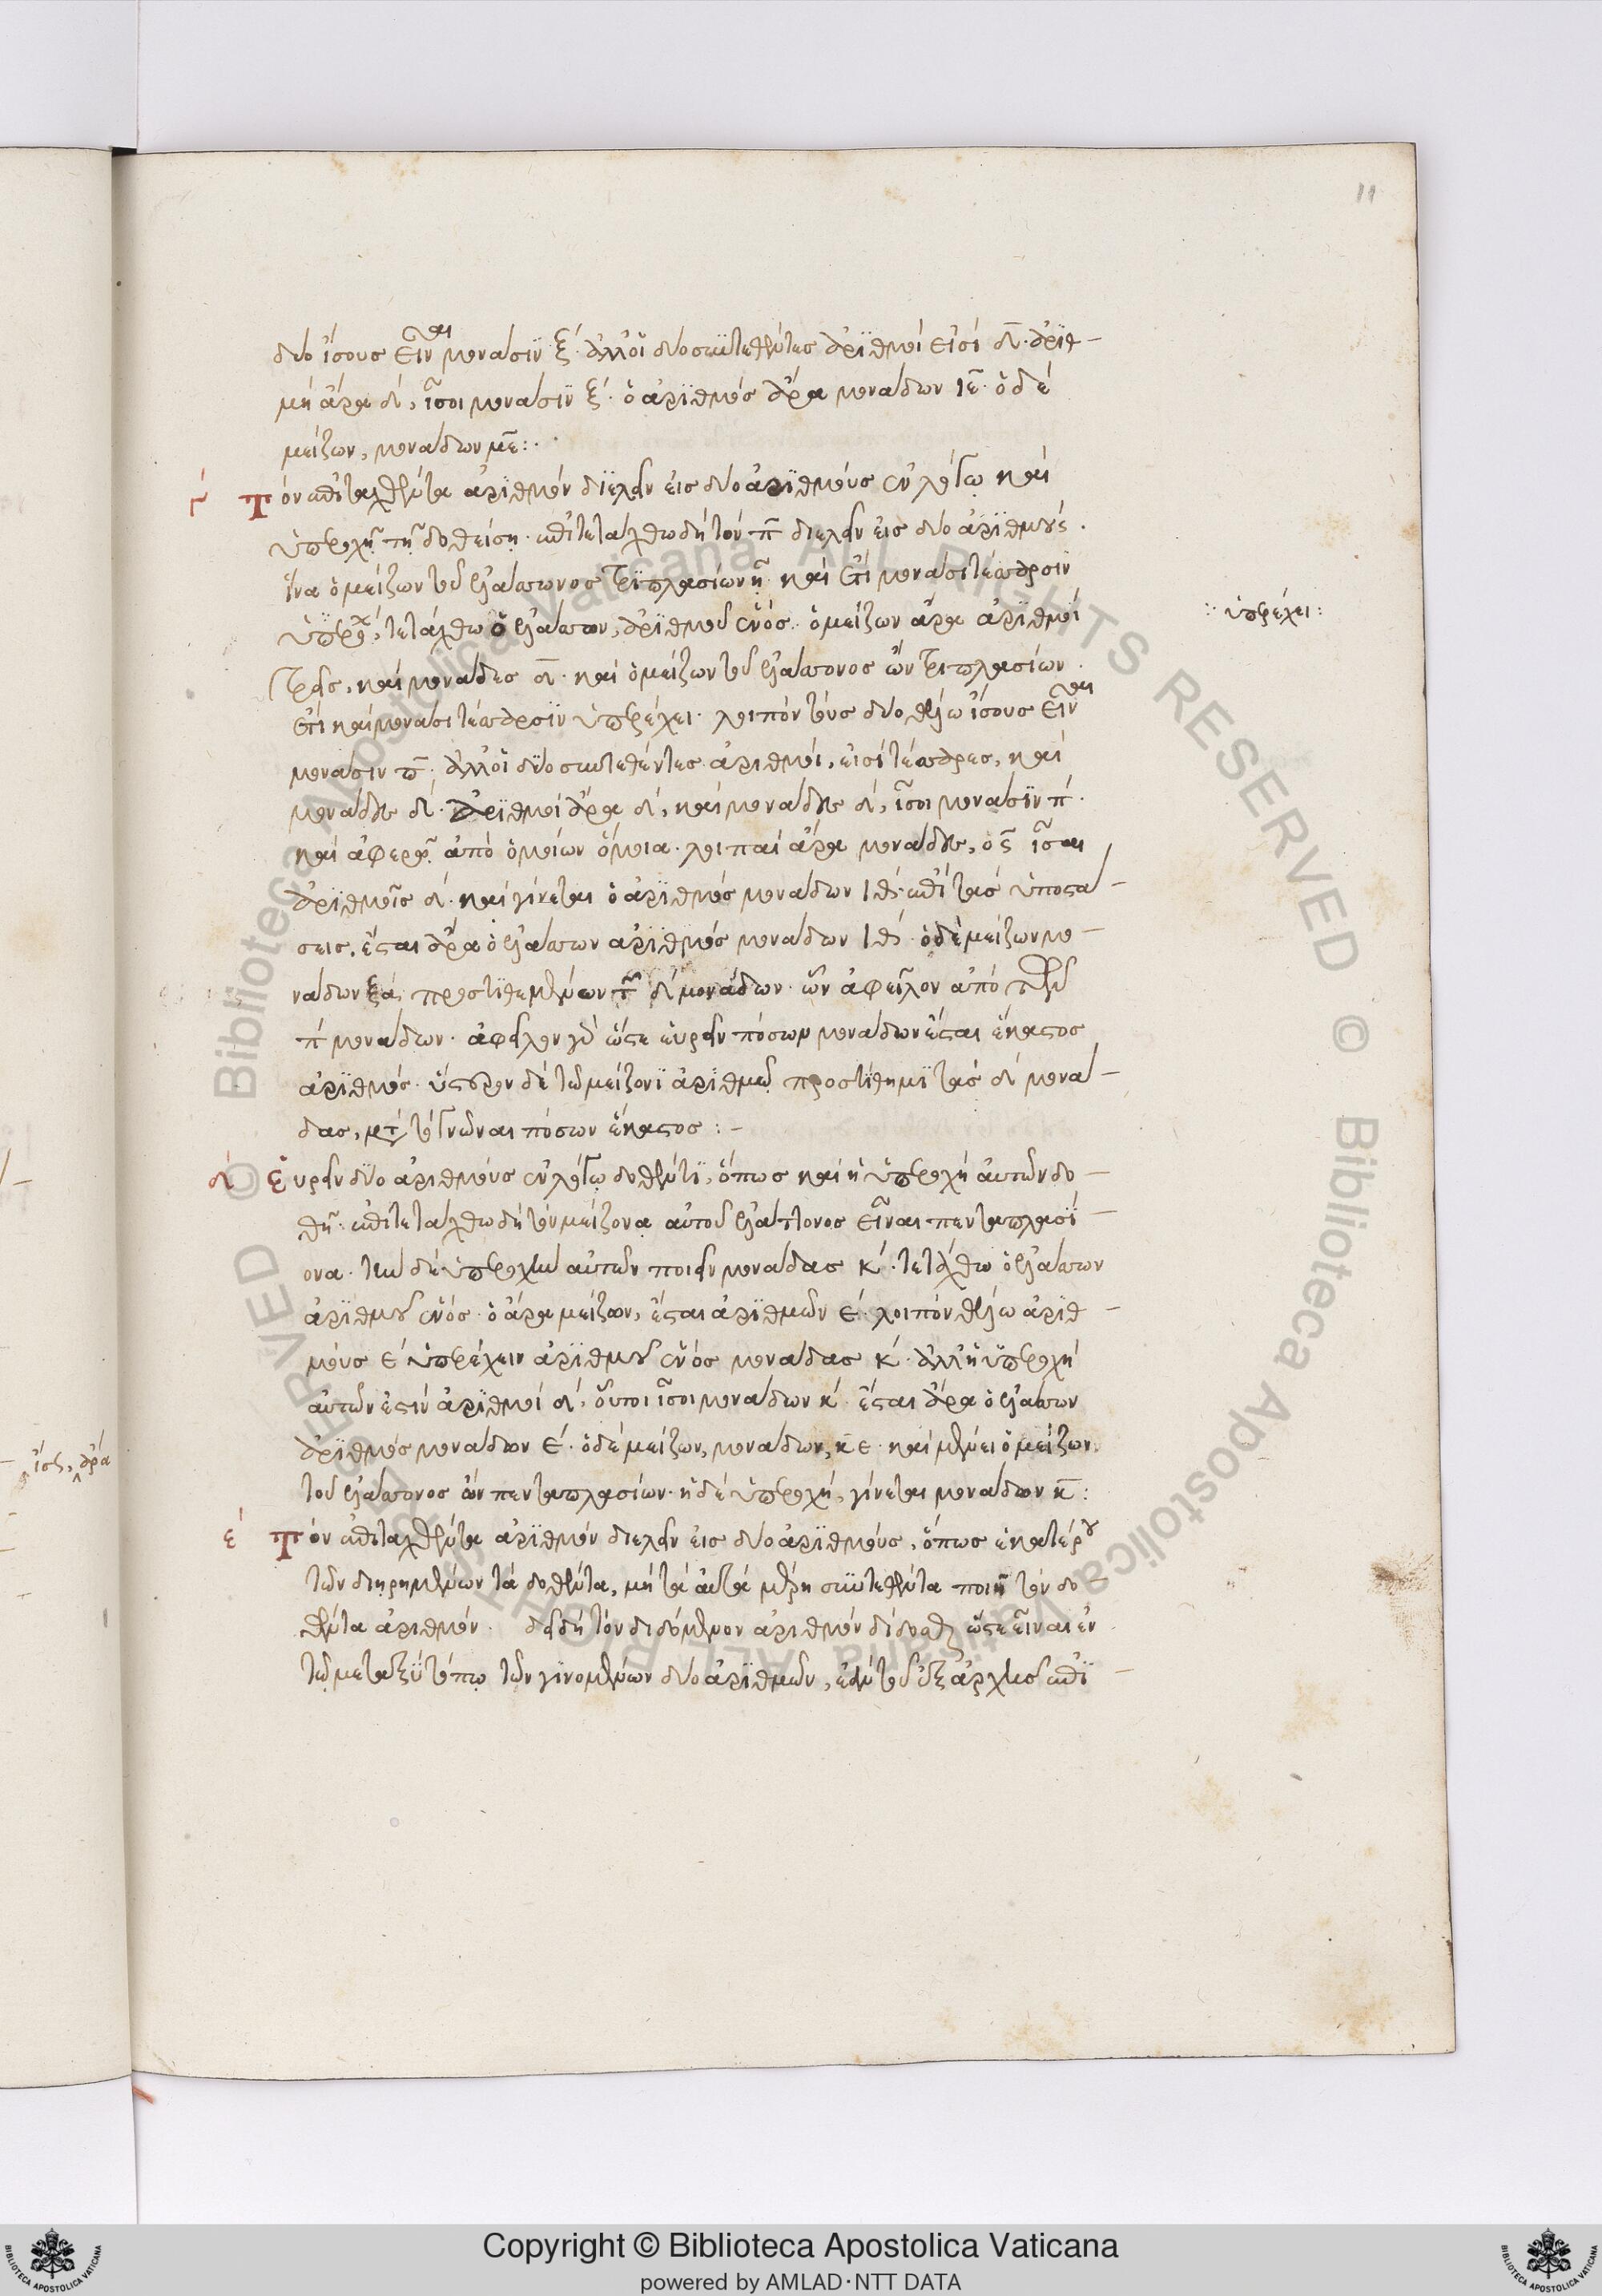 11
δύο ἴσους εἶναι μονάσιν ξ́· ἀλλ' οἱ δύο συντεθέντες ἀριθμοί εἰσί δ̄· ἀριθ-
μοὶ ἄρα δ́, ἴσοι μονάσιν ξ́· ὁ ἀριθμός ἄρα μονάδων ιε̄· ὁ δέ
μείζων, μονάδων με̄:·
γ́ Τὸν ἐπιταχθέντα ἀριθμόν διελεῖν εἰς δύο ἀριθμούς ἐν λόγῳ καί
ὑπεροχῇ τῇ δοθείσῃ· ἐπιτετάχθω δή τόν π̄ διελεῖν εἰς δύο ἀριθμούς·
ἵνα ὁ μείζων τοῦ ἐλάσσονος τριπλασίων ᾖ· καί ἔτι μονάσι τέσσαρσιν
ὑπερέχῃ, τετάχθω ὁ ἐλάσσων, ἀριθμοῦ ἑνός· ὁ μείζων ἄρα ἀριθμοί
:· ὑπερέχει:
τρεῖς, καί μονάδες δ̄· καί ὁ μείζων τοῦ ἐλάσσονος ὤν τριπλασίων·
ἔτι καί μονάσι τέσσαρσιν ὑπερέχει· λοιπόν τούς δύο θέλω ἴσους εἶναι
μονάσιν π̄· ἀλλ' οἱ δύο συντεθέντες ἀριθμοί, εἰσί τέσσαρες, καί
μονάδες δ́· ἀριθμοί ἄρα δ́, καί μονάδες δ́, ἴσοι μονάσιν π́·
καί ἀφαιρῶ ἀπό ὁμοίων ὅμοια· λοιπαί ἄρα μονάδες, ος̄ ἴσαι
ἀριθμοῖς δ́· καί γίνεται ὁ ἀριθμός μονάδων ιθ́· ἐπί τάς ὑποστά-
σεις· ἔσται ἄρα ὁ ἐλάσσων ἀριθμός μονάδων ιθ́· ὁ δέ μείζων μο-
νάδων ξά, προστιθεμένων τῶν δ́ μονάδων· ὧν ἀφεῖλον ἀπό τῶν
π́ μονάδων· ἀφεῖλον γάρ ὥστε εὑρεῖν πόσων μονάδων ἔσται ἕκαστος
ἀριθμός· ὕστερον δέ τῷ μείζονι ἀριθμῷ προστίθημι τάς δ́ μονά-
δας, μετά τό γνῶναι πόσων ἕκαστος :-
δ́ Εὑρεῖν δύο ἀριθμούς ἐν λόγῳ δοθέντι, ὅπως καί ἡ ὑπεροχή αὐτῶν δο-
θῇ· ἐπιτετάχθω δή τόν μείζονα αὐτοῦ ἐλάττονος εἶναι πενταπλασί-
ονα· τήν δέ ὑπεροχήν αὐτῶν ποιεῖν μονάδας κ́· τετάχθω ὁ ἐλάσσων
ἀριθμοῦ ἑνός· ὁ ἄρα μείζων, ἔσται ἀριθμῶν έ· λοιπόν θέλω ἀριθ-
μούς έ ὑπερέχειν ἀριθμοῦ ἑνός μονάδας κ́· ἀλλ' ἡ ὑπεροχή
αὐτῶν ἐστίν ἀριθμοί δ́, οὗτοι ἴσοι μονάδων κ́· ἔσται ἄρα ὁ ἐλάσσων
ἀριθμός μονάδων έ· ὁ δέ μείζων, μονάδων, κε· καί μένει ὁ μείζων
τοῦ ἐλάσσονος ὤν πενταπλασίων· ἡ δέ ὑπεροχή, γίνεται μονάδων κ̄:
έ Τόν ἐπιταχθέντα ἀριθμόν διελεῖν εἰς δύο ἀριθμούς, ὅπως ἑκατέρου
τῶν διῃρημένων τά δοθέντα, μή τά αὐτά μέρη συντεθέντα ποιῇ τόν δο-
θέντα ἀριθμόν· δεῖ δή τόν διδόμενον ἀριθμόν δίδοσθαι ὥστε εἶναι ἐν
τῷ μεταξύ τόπῳ τῶν γινομένων δύο ἀριθμῶν, ἐάν τοῦ ἐξ ἀρχῆς ἐπι-
ἴσος, ἄρα
© Biblioteca Apostolica Vaticana ALL RIGHTS RESERVED © Biblioteca Apostolica Vaticana ALL RIGHTS RESERVED
Copyright © Biblioteca Apostolica Vaticana
powered by AMLAD·NTT DATA
BIBLIOTECA APOSTOLICA VATICANA
BIBLIOTECA APOSTOLICA VATICANA